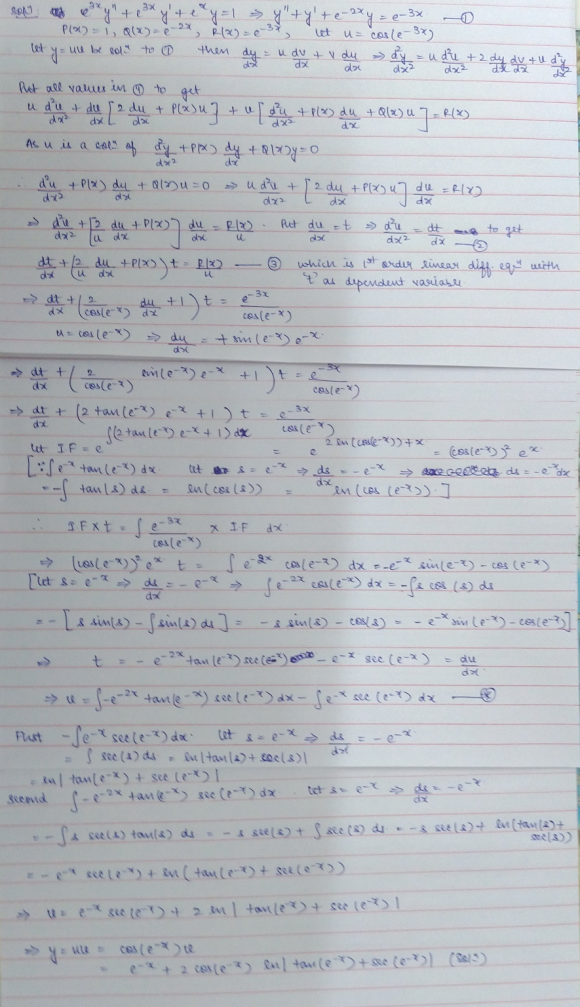 Sol: e^{3x}y'' + e^{3x}y' + e^x y = 1 ⇒ y'' + y' + e^{-2x}y = e^{-3x} — ①
P(x) = 1, Q(x) = e^{-2x}, R(x) = e^{-3x}, let u = cos(e^{-x})
let y = uv be solⁿ to ① then dy/dx = u dv/dx + v du/dx ⇒ d²y/dx² = u d²v/dx² + 2 du/dx dv/dx + v d²u/dx²
Put all values in ① to get
u d²v/dx² + dv/dx [2 du/dx + P(x)u] + v [d²u/dx² + P(x) du/dx + Q(x)u] = R(x)
As u is a solⁿ of d²y/dx² + P(x) dy/dx + Q(x)y = 0
∴ d²u/dx² + P(x) du/dx + Q(x)u = 0 ⇒ u d²v/dx² + [2 du/dx + P(x)u] dv/dx = R(x)
⇒ d²v/dx² + [2/u du/dx + P(x)] dv/dx = R(x)/u . Put dv/dx = t ⇒ d²v/dx² = dt/dx — ② to get
dt/dx + (2/u du/dx + P(x)) t = R(x)/u — ③ which is 1st order linear diff. eqⁿ with
't' as dependent variable
⇒ dt/dx + (2/cos(e^{-x}) du/dx + 1) t = e^{-3x}/cos(e^{-x})
u = cos(e^{-x}) ⇒ du/dx = + sin(e^{-x}) e^{-x}
⇒ dt/dx + (2/cos(e^{-x}) sin(e^{-x}) e^{-x} + 1) t = e^{-3x}/cos(e^{-x})
⇒ dt/dx + (2 tan(e^{-x}) e^{-x} + 1) t = e^{-3x}/cos(e^{-x})
let IF = e^{∫(2tan(e^{-x}) e^{-x} + 1) dx} = e^{2 ln(cos(e^{-x})) + x} = (cos(e^{-x}))² e^x
[∵ ∫e^{-x} tan(e^{-x}) dx let s = e^{-x} ⇒ ds/dx = -e^{-x} ⇒ ds = -e^{-x}dx
= -∫ tan(s) ds = ln(cos(s)) = ln(cos(e^{-x})).]
∴ IF × t = ∫ e^{-3x}/cos(e^{-x}) × IF dx
⇒ (cos(e^{-x}))² e^x t = ∫ e^{-2x} cos(e^{-x}) dx = -e^{-x} sin(e^{-x}) - cos(e^{-x})
[let s = e^{-x} ⇒ ds/dx = -e^{-x} ⇒ ∫e^{-2x} cos(e^{-x}) dx = -∫s cos(s) ds
= -[s sin(s) - ∫sin(s) ds] = -s sin(s) - cos(s) = -e^{-x} sin(e^{-x}) - cos(e^{-x})]
⇒ t = -e^{-2x} tan(e^{-x}) sec(e^{-x}) - e^{-x} sec(e^{-x}) = dv/dx
⇒ v = ∫-e^{-2x} tan(e^{-x}) sec(e^{-x}) dx - ∫e^{-x} sec(e^{-x}) dx — ④
First -∫e^{-x} sec(e^{-x}) dx. let s = e^{-x} ⇒ ds/dx = -e^{-x}
= ∫ sec(s) ds = ln|tan(s) + sec(s)|
= ln|tan(e^{-x}) + sec(e^{-x})|
second ∫-e^{-2x} tan(e^{-x}) sec(e^{-x}) dx. let s = e^{-x} ⇒ ds/dx = -e^{-x}
= -∫s sec(s) tan(s) ds = -s sec(s) + ∫sec(s) ds = -s sec(s) + ln(tan(s) + sec(s))
= -e^{-x} sec(e^{-x}) + ln(tan(e^{-x}) + sec(e^{-x}))
⇒ v = e^{-x} sec(e^{-x}) + 2 ln|tan(e^{-x}) + sec(e^{-x})|
⇒ y = uv = cos(e^{-x}) v
= e^{-x} + 2 cos(e^{-x}) ln|tan(e^{-x}) + sec(e^{-x})| (Solⁿ)